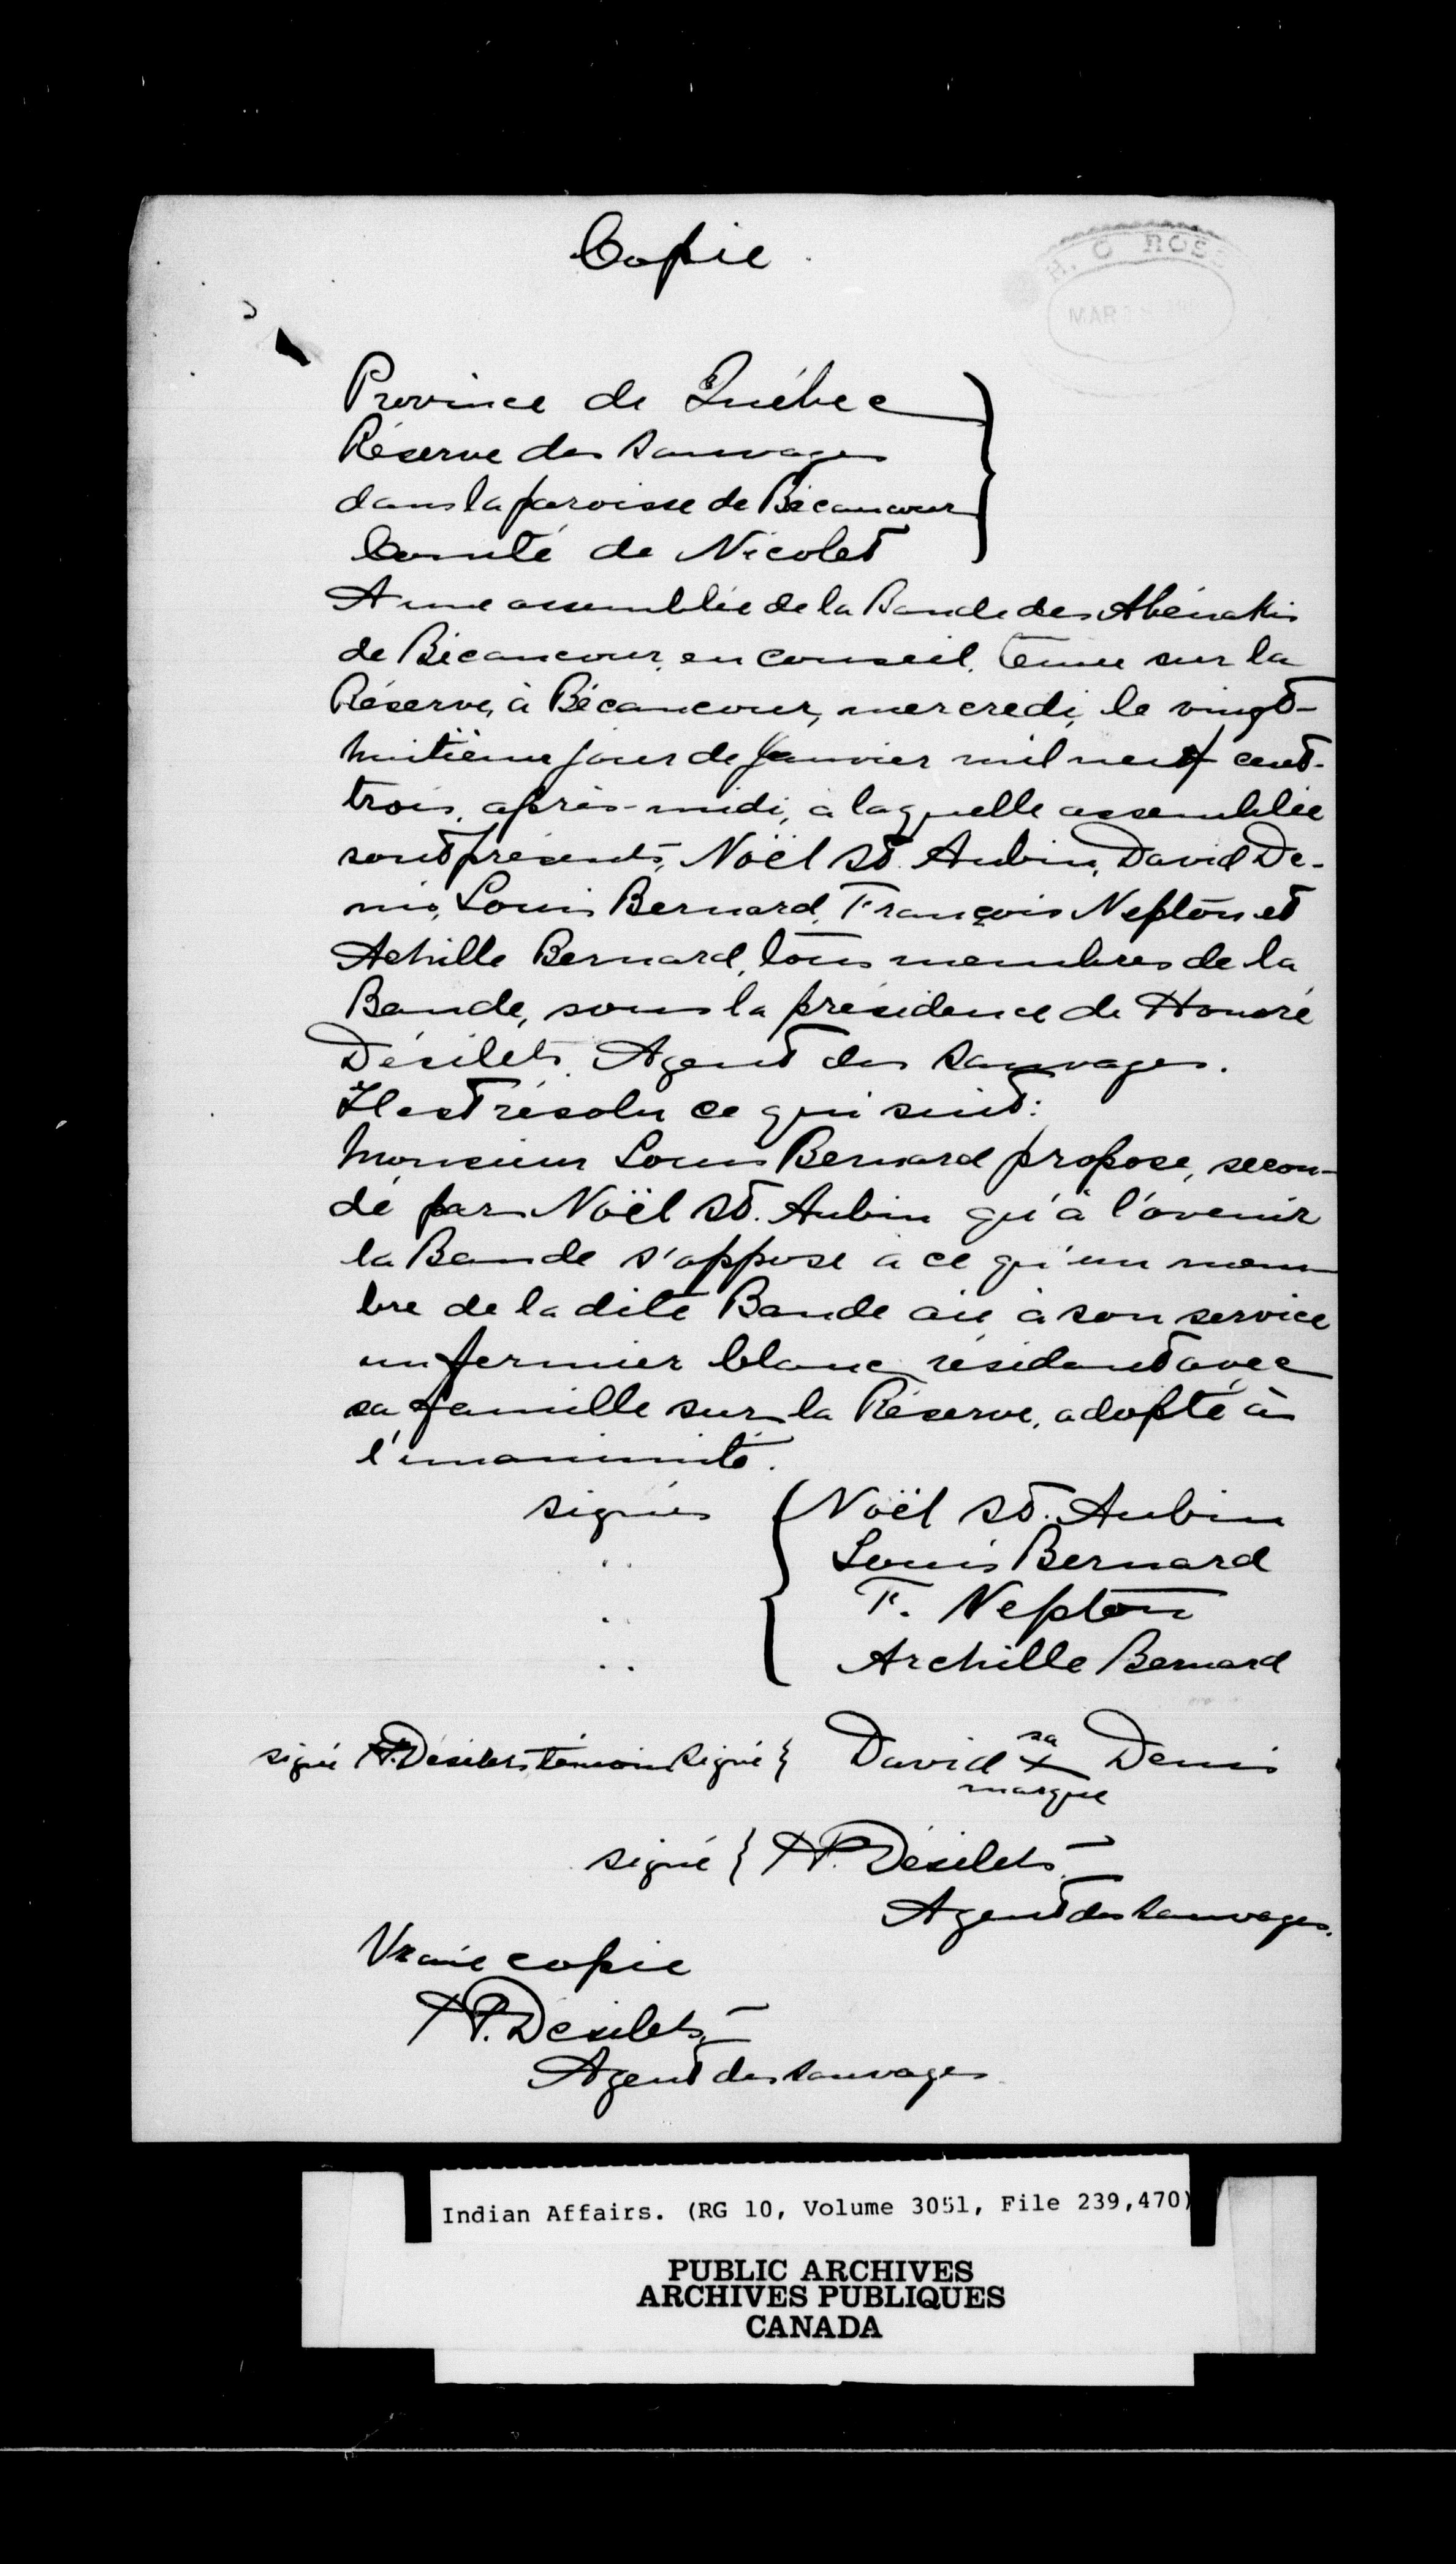 Copie
H. C ROSS
MAR
Province de Québec
Réserve des Sauvages
dans la paroisse de Bécancour
Comté de Nicolet
A une assemblée de la Bande des Abénakis
de Bécancour, en conseil, tenue sur la
Réserve, à Bécancour, mercredi, le vingt-
huitième jour de Janvier mil neuf cent-
trois, après-midi, à laquelle assemblée
sont présents, Noël St. Aubin, David De-
nis, Louis Bernard, François Nepton et
Achille Bernard, tous membres de la
Bande, sous la présidence de Honoré
Désilets, Agent des Sauvages.
Il est résolu ce qui suit:
Monsieur Louis Bernard propose, secon-
dé par Noël St. Aubin qu'à l'avenir
la Bande s'oppose à ce qu'un mem
bre de la dite Bande aie à son service
un fermier blanc, résidant avec
sa famille sur la Réserve, adopté à
l'unanimité.
signés { Noël St. Aubin
" Louis Bernard
" F. Nepton
" Archille Bernard
signé H.P. Désilets témoin signé { David sa X marque Denis
signé { H.P. Désilets,
Agent des Sauvages.
Vraie copie
H.P. Désilets,
Agent des Sauvages
Indian Affairs. (RG 10, Volume 3051, File 239,470)
PUBLIC ARCHIVES
ARCHIVES PUBLIQUES
CANADA